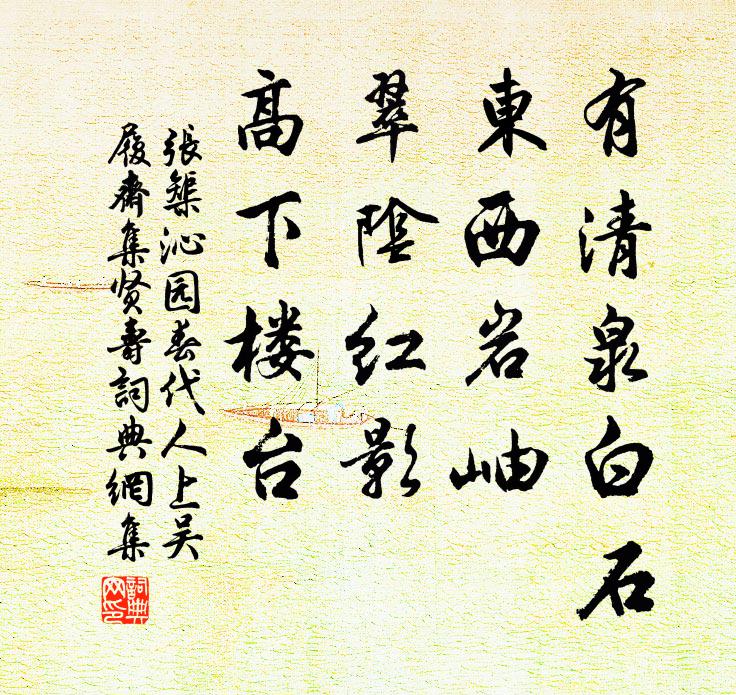 有清泉白石
東西岩岫
翠陰红影
高下楼台
張榘沁园春代人上吴
履齋集贤壽詞典網集
詞典网印